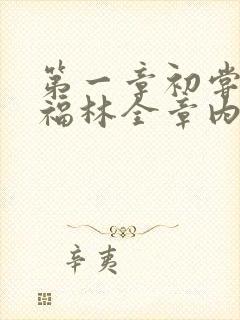 第一章初尝
福林全章内
辛夷